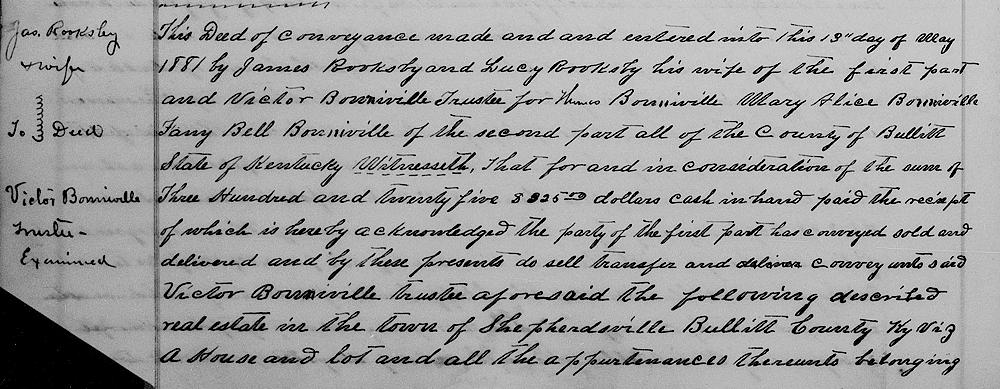 Jas. Rooksby
& wife
To Deed
Victor Bonniville
Trustee -
Examined
This Deed of Conveyance made and and entered into this 13" day of May
1881 by James Rooksby and Lucy Rooksby his wife of the first part
and Victor Bonniville Trustee for Bonniville Mary Alice Bonniville
Fany Bell Bonniville of the second part all of the County of Bullitt
State of Kentucky Witnesseth, That for and in consideration of the sum of
Three Hundred and twenty five $325.00 dollars cash in hand paid the reciept
of which is hereby acknowledged the party of the first part has conveyed sold and
delivered and by these presents do sell transfer and deliver convey unto said
Victor Bonniville trustee aforesaid the following described
real estate in the town of Shepherdsville Bullitt County Ky Viz
A House and lot and all the appurtenances thereunto belonging